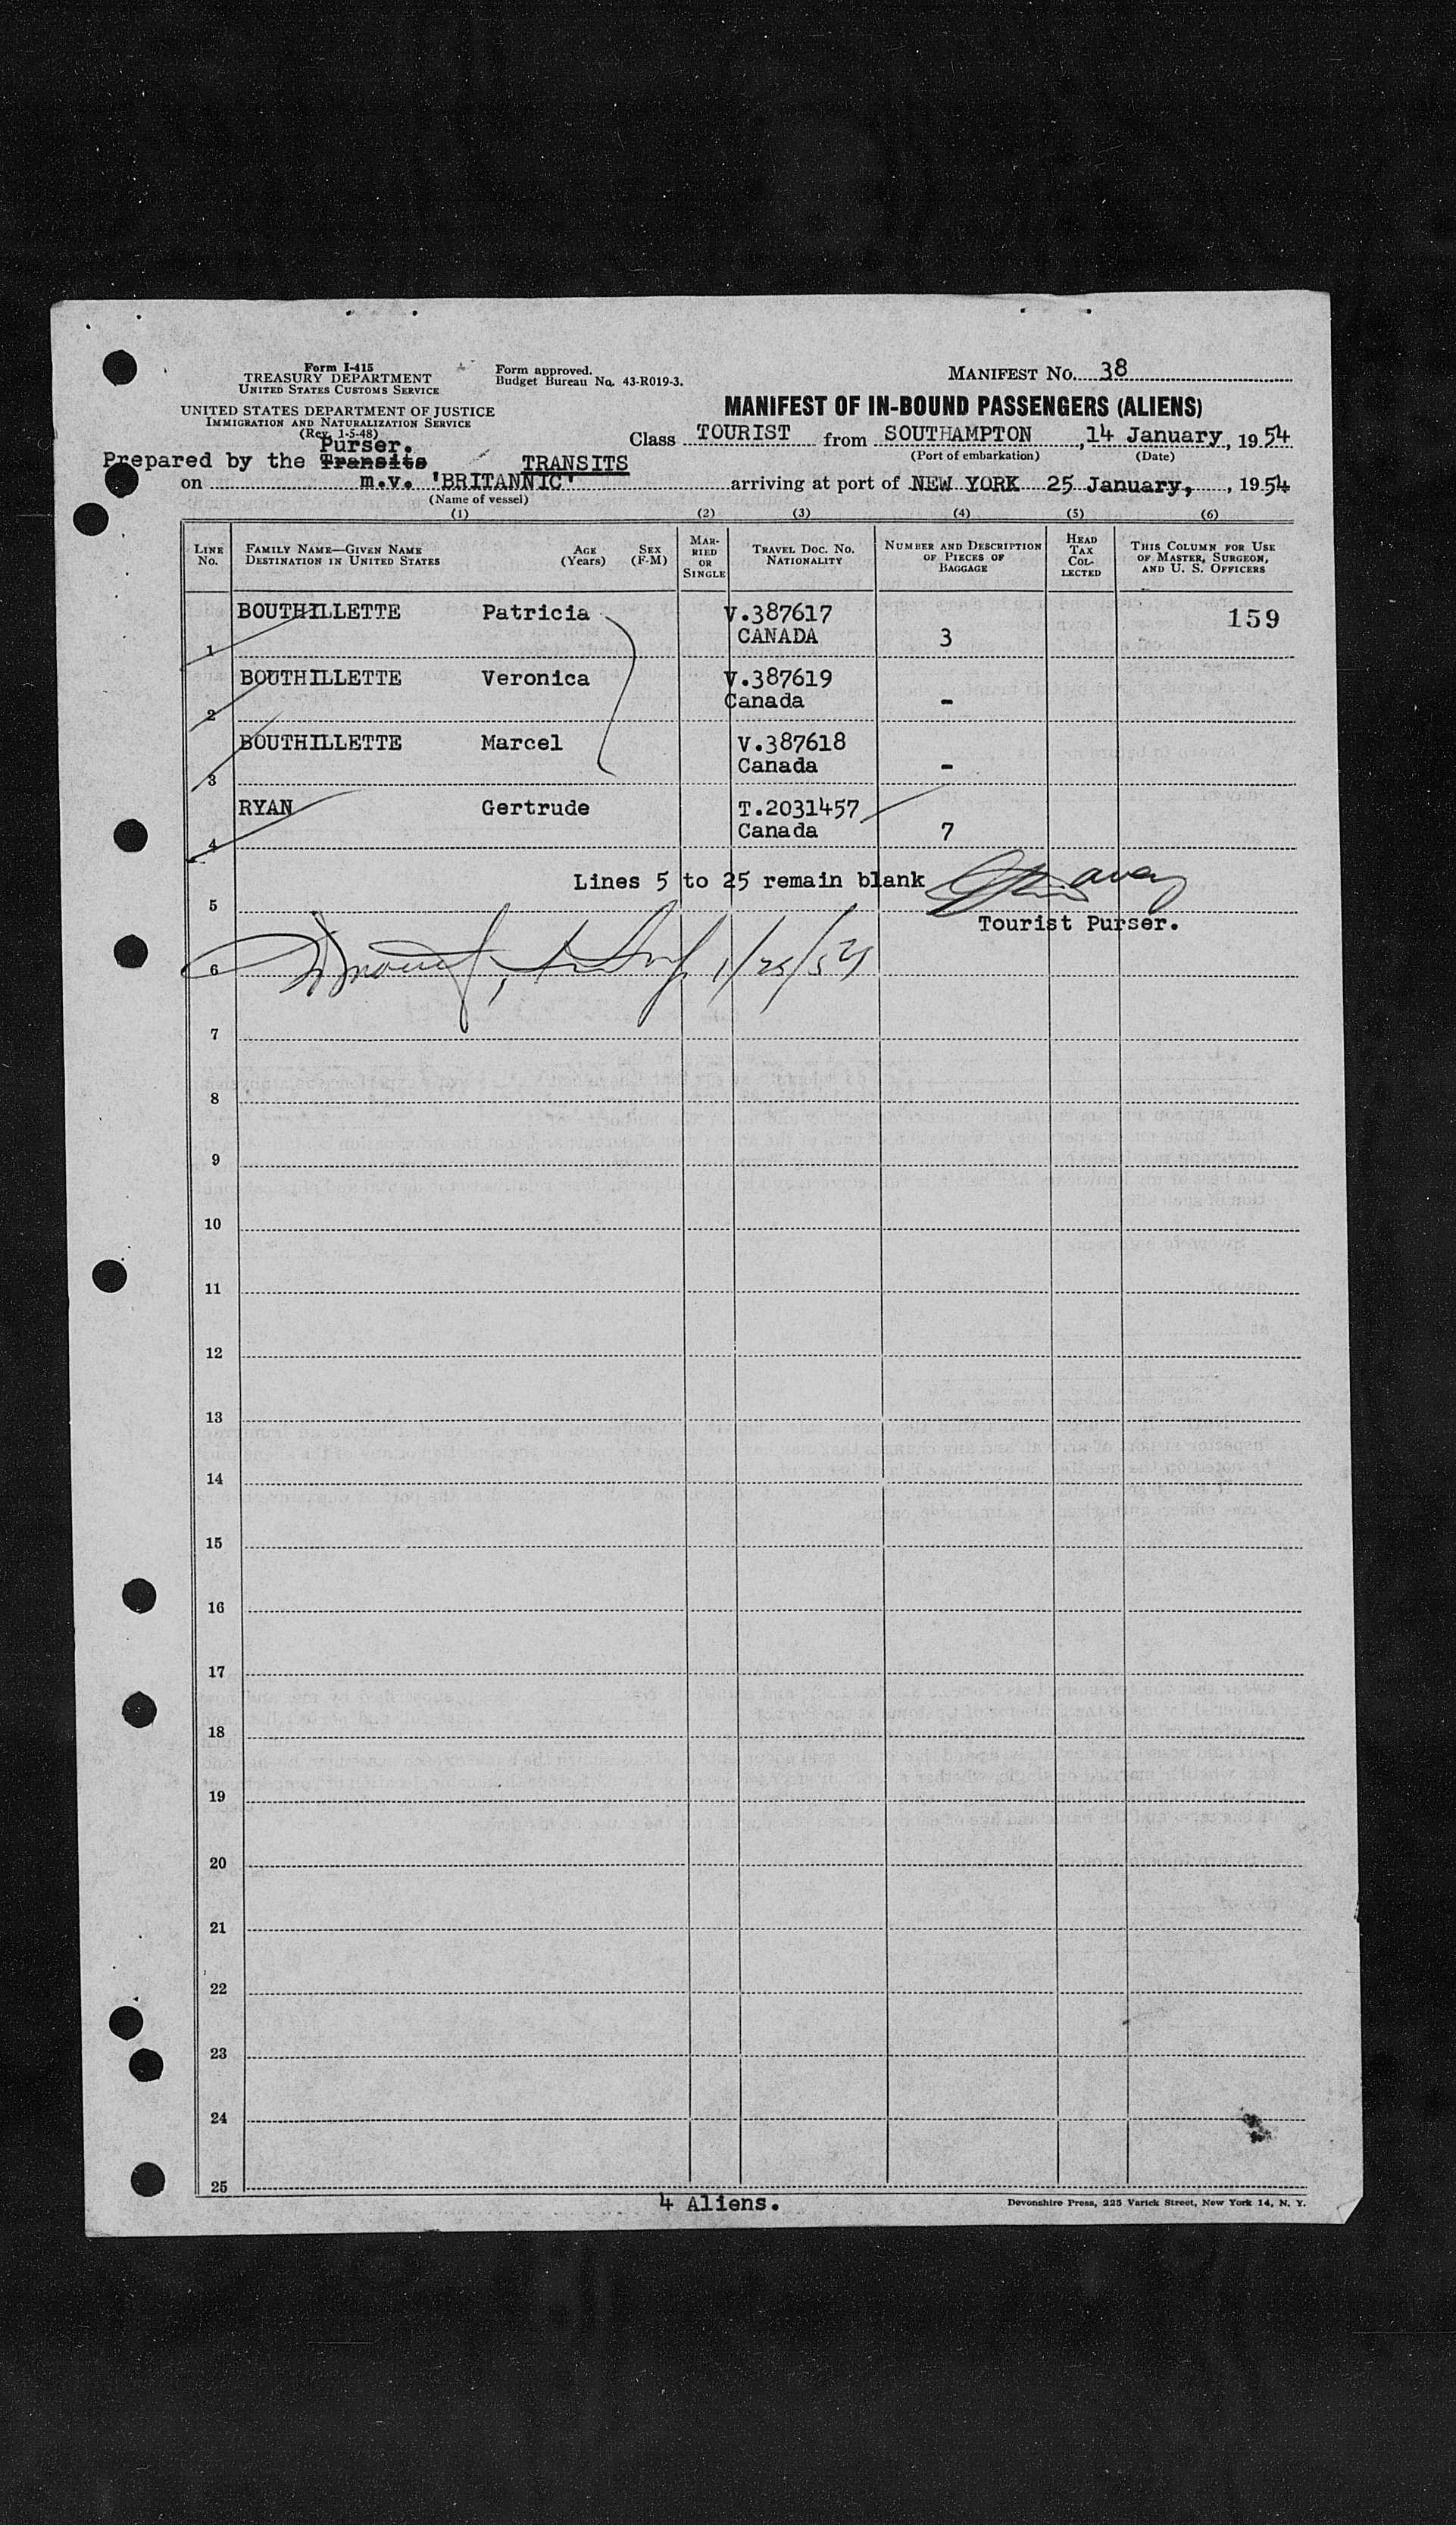 Form I-415
TREASURY DEPARTMENT
UNITED STATES CUSTOMS SERVICE
Form approved.
Budget Bureau No. 43-R019-3.
MANIFEST No. 38
UNITED STATES DEPARTMENT OF JUSTICE
IMMIGRATION AND NATURALIZATION SERVICE
(Rev. 1-5-48)
MANIFEST OF IN-BOUND PASSENGERS (ALIENS)
Purser.
Class TOURIST from SOUTHAMPTON, 14 January, 1954
(Port of embarkation) (Date)
Prepared by the Transits. TRANSITS
on m.v. 'BRITANNIC' arriving at port of NEW YORK 25 January, , 1954
(Name of vessel)
(1) (2) (3) (4) (5) (6)
LINE No. FAMILY NAME—GIVEN NAME DESTINATION IN UNITED STATES AGE (Years) SEX (F-M) MARRIED OR SINGLE TRAVEL DOC. NO. NATIONALITY NUMBER AND DESCRIPTION OF PIECES OF BAGGAGE HEAD TAX COLLECTED THIS COLUMN FOR USE OF MASTER, SURGEON, AND U. S. OFFICERS
BOUTHILLETTE Patricia V.387617 159
1 CANADA 3
BOUTHILLETTE Veronica V.387619
2 Canada -
BOUTHILLETTE Marcel V.387618
3 Canada -
RYAN Gertrude T.2031457
4 Canada 7
Lines 5 to 25 remain blank
5
Tourist Purser.
6 1/25/54
7
8
9
10
11
12
13
14
15
16
17
18
19
20
21
22
23
24
25
4 Aliens.
Devonshire Press, 225 Varick Street, New York 14, N. Y.